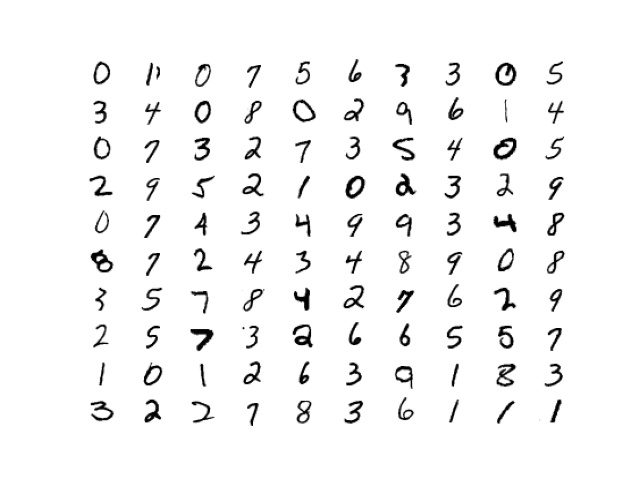 0 1 0 7 5 6 3 3 0 5
3 4 0 8 0 2 9 6 1 4
0 7 3 2 7 3 5 4 0 5
2 9 5 2 1 0 2 3 2 9
0 7 4 3 4 9 9 3 4 8
8 7 2 4 3 4 8 9 0 8
3 5 7 8 4 2 7 6 2 9
2 5 7 3 2 6 6 5 5 7
1 0 1 2 6 3 9 1 8 3
3 2 2 7 8 3 6 1 1 1